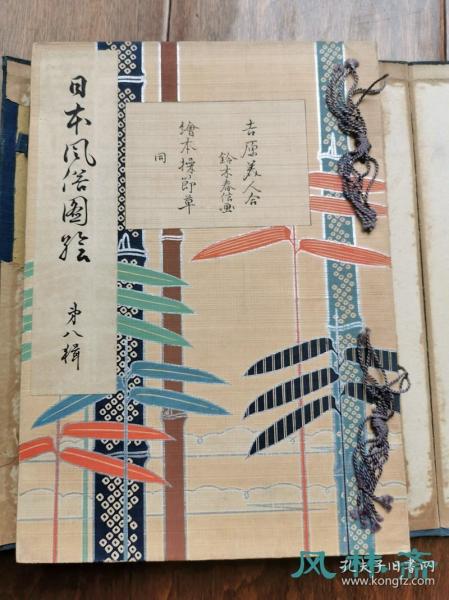 日本风俗圖絵 第八輯
吉原美人合
鈴木春信画
繪本操節草
同
风林斋
孔夫子旧书网
www.kongfz.com